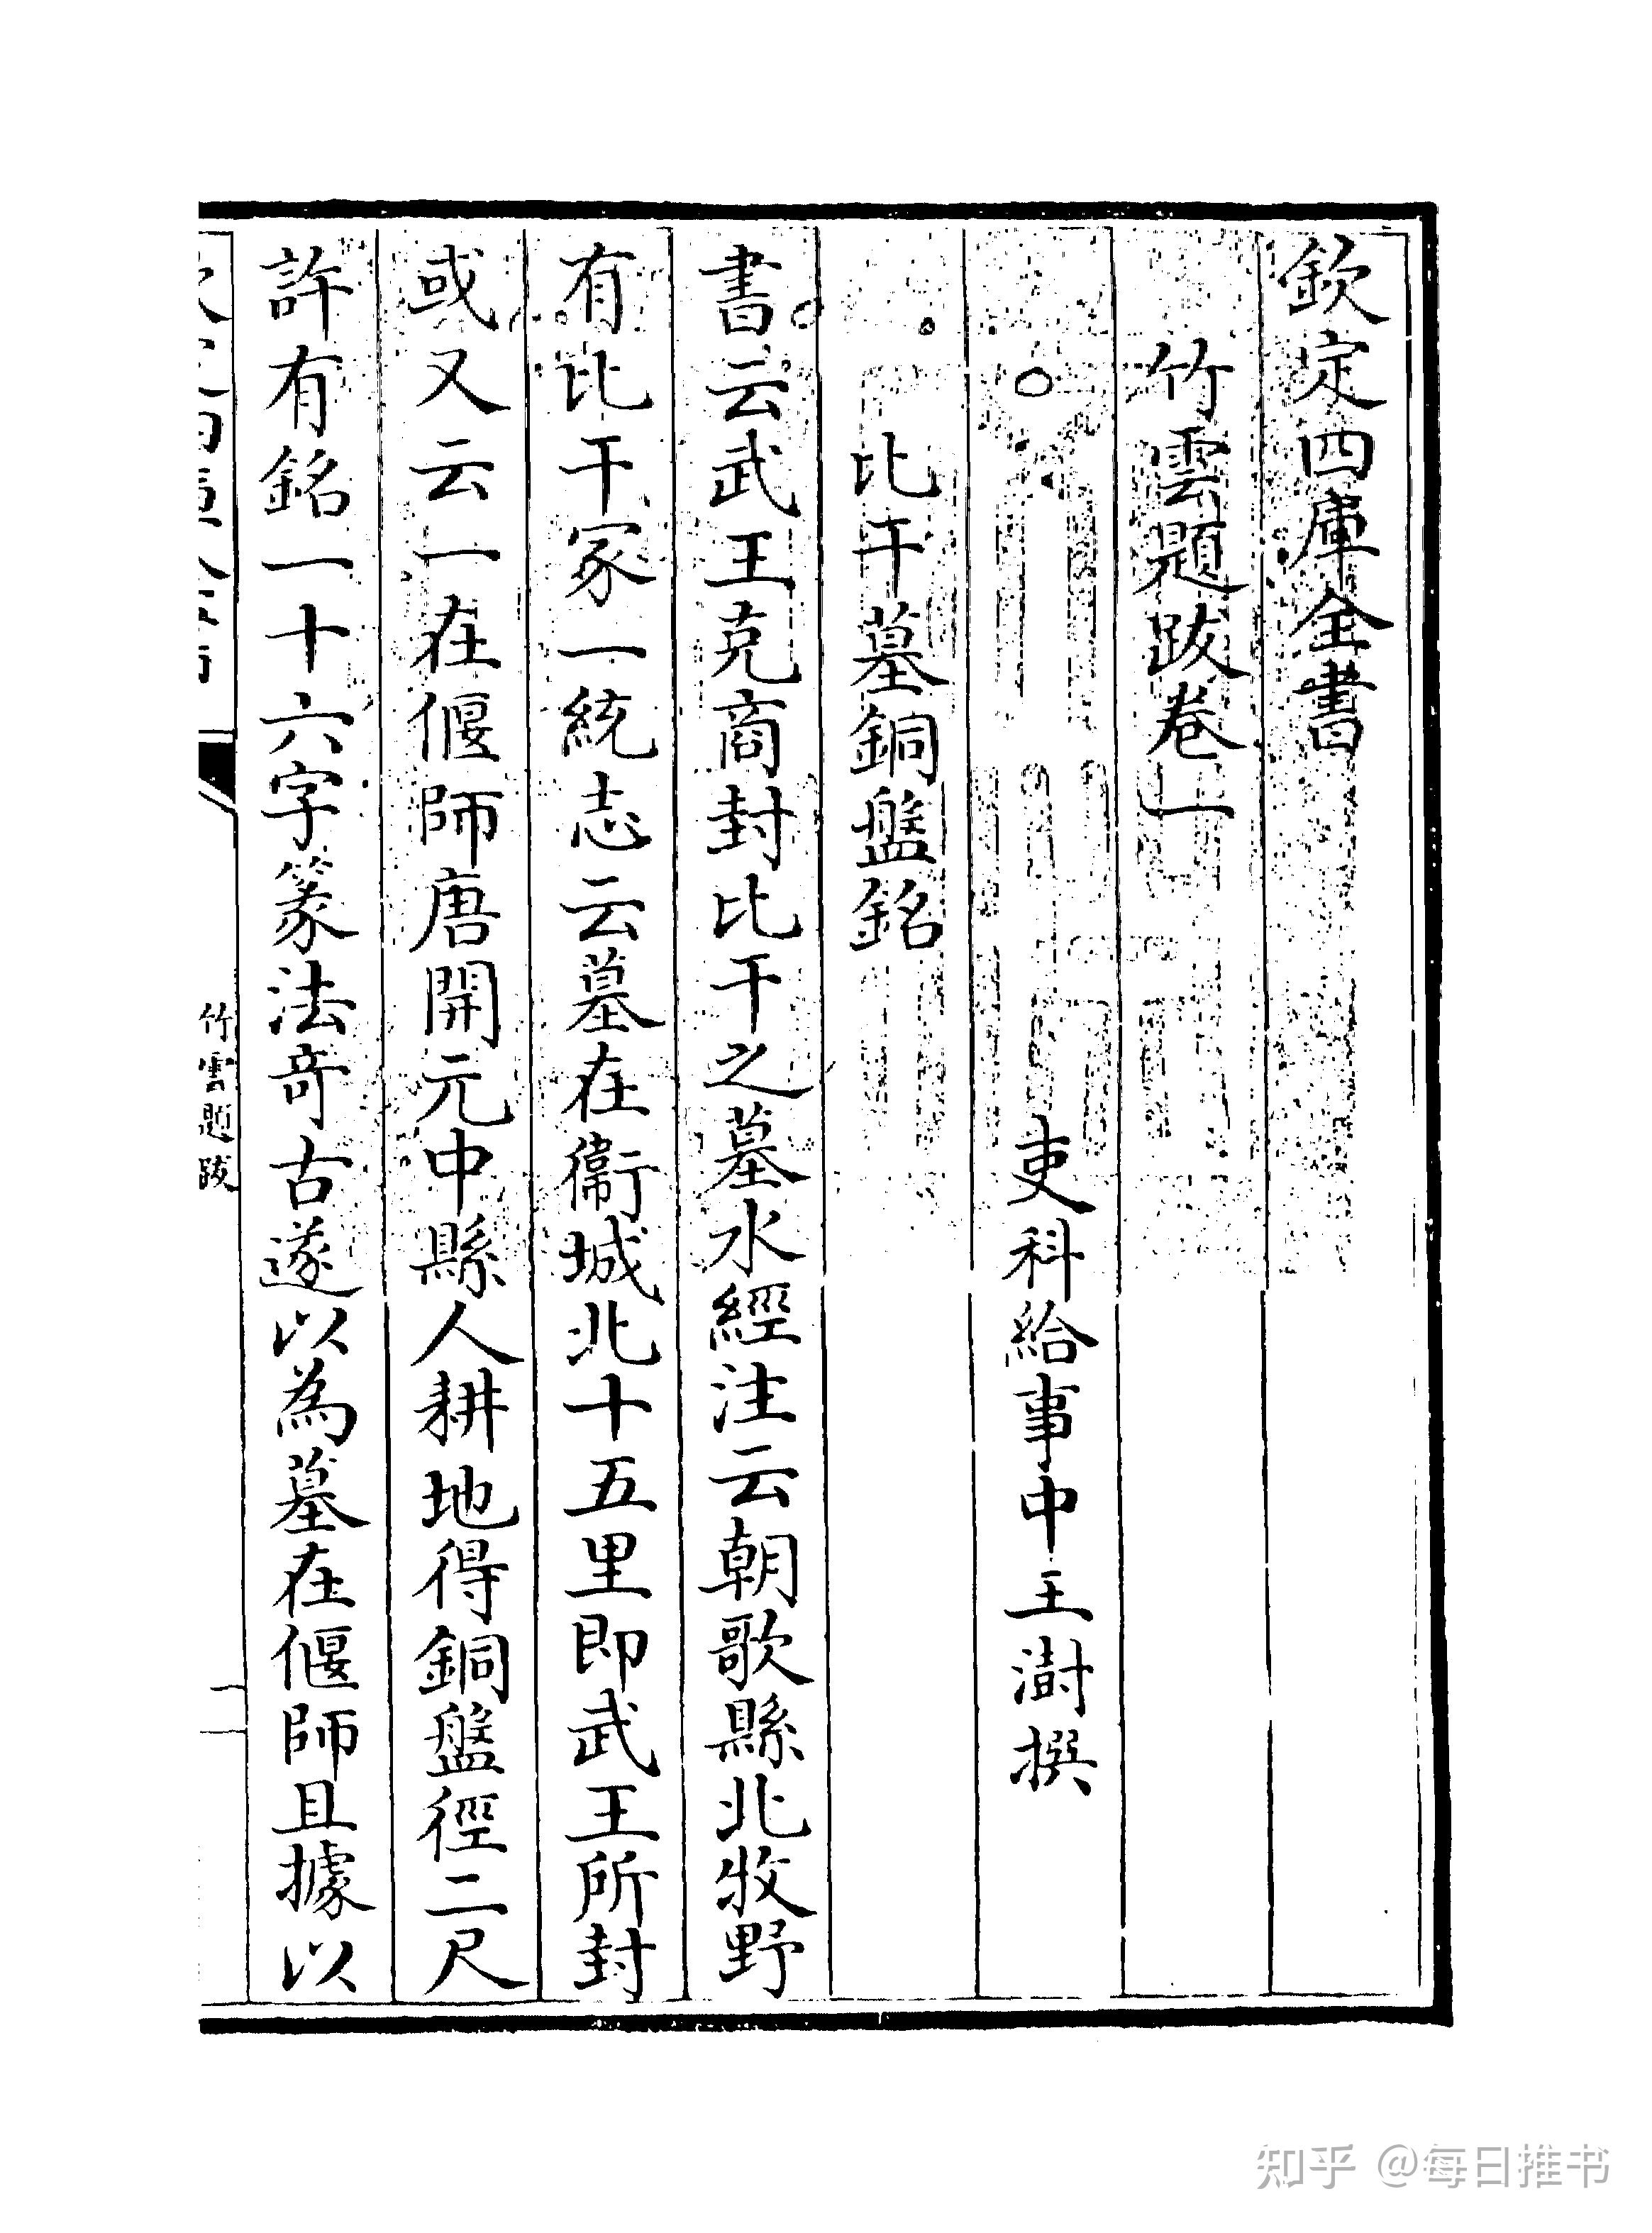 欽定四庫全書
竹雲題跋卷一
吏科給事中王澍撰
比干墓銅盤銘
書云武王克商封比干之墓水經注云朝歌縣北牧野
有比干冢一統志云墓在衞城北十五里即武王所封
或又云一在偃師唐開元中縣人耕地得銅盤徑二尺
許有銘一十六字篆法奇古遂以為墓在偃師且據以
竹雲題跋
一
知乎 @每日推书